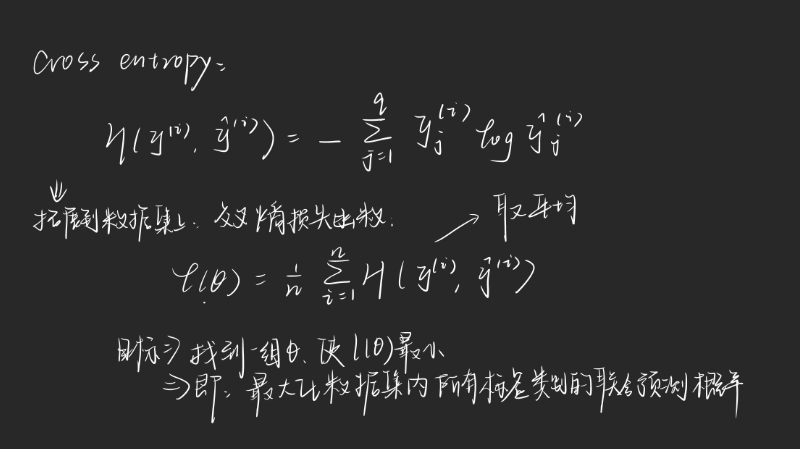 Cross entropy:
H(y^{(i)}, ŷ^{(i)}) = - \sum_{j=1}^{q} y_j^{(i)} log ŷ_j^{(i)}
⇓
拓展到数据集上. 交叉熵损失函数.
→ 取平均
ℓ(θ) = \frac{1}{n} \sum_{i=1}^{n} H(y^{(i)}, ŷ^{(i)})
目标⇒ 找到一组θ. 使ℓ(θ)最小
⇒即: 最大化数据集内所有标签类别的联合预测概率